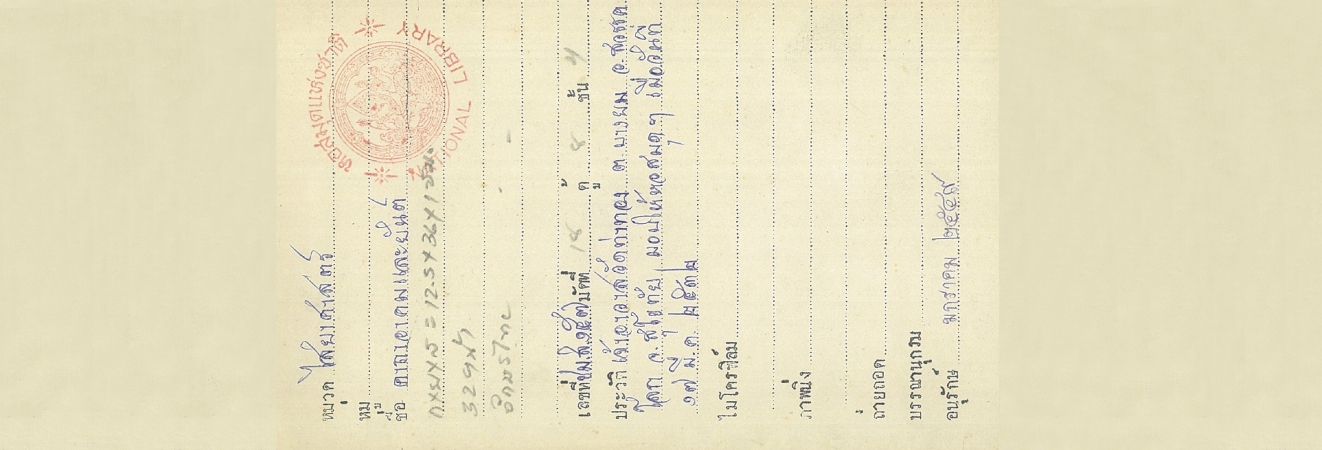 หอสมุดแห่งชาติ
NATIONAL LIBRARY
หมวด ไสยศาสตร์
หมู่
ชื่อ คาถาอาคมและยันต์
กxยxส = 12.5x36x1 ซม.
329 หน้า
อักษรไทย
เลขที่ ชม.อ. ๑๕๗ มัดที่ 18 ตู้ 8 ชั้น 4
ประวัติ เจ้าอาวาสวัดท่าทอง ต. บางยม อ. สวรรค
โลก จ. สุโขทัย มอบให้หอสมุดฯ เมื่อวันที่
๑๗ มี.ค. ๒๕๓๒
ไมโครฟิล์ม
ภาพนิ่ง
ถ่ายถอด
บรรณานุกรม
อนุรักษ์ มกราคม ๒๕๔๙